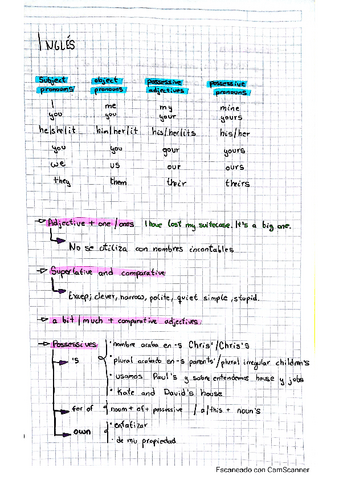 INGLÉS
Subject pronouns object pronouns possessive adjectives possessive pronouns
I me my mine
you you your yours
he/she/it him/her/it his/her/its his/her
you you your yours
we us our ours
they them their theirs
Adjective + one/ones. I have lost my suitcase. It's a big one.
No se utiliza con nombres incontables
Superlative and comparative
Excep; clever, narrow, polite, quiet simple, stupid.
a bit / much + comparative adjectives.
Possessives
's
· nombre acaba en -s Chris'/Chris's
· plural acabado en -s parents'/plural irregular children's
· usamos Paul's y sobre entendemos house y jobs
· Kate and David's house
for of · noum + of + possessive / a/this + noun's
own · enfatizar
· de mi propiedad
Escaneado con CamScanner